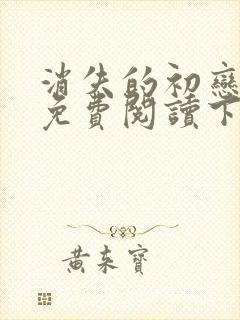 消失的初戀
免費閱讀下
黄来寶